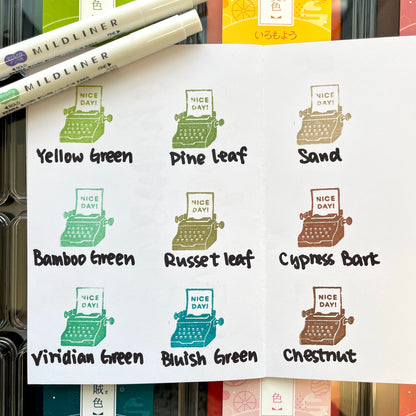 いろもよう
MILDLINER
MILDLINER
NICE DAY!
NICE DAY!
NICE DAY!
Yellow Green
Pine leaf
Sand
NICE DAY!
NICE DAY!
NICE DAY!
Bamboo Green
Russet leaf
Cypress Bark
NICE DAY!
NICE DAY!
NICE DAY!
Viridian Green
Bluish Green
Chestnut
色